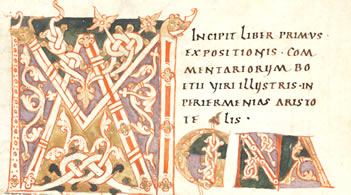 INCIPIT LIBER PRIMUS
EXPOSITIONIS · COM
MENTARIORUM BO
ETII VIRI ILLUSTRIS · IN
PERIERMENIAS ARISTO
TELIS ·